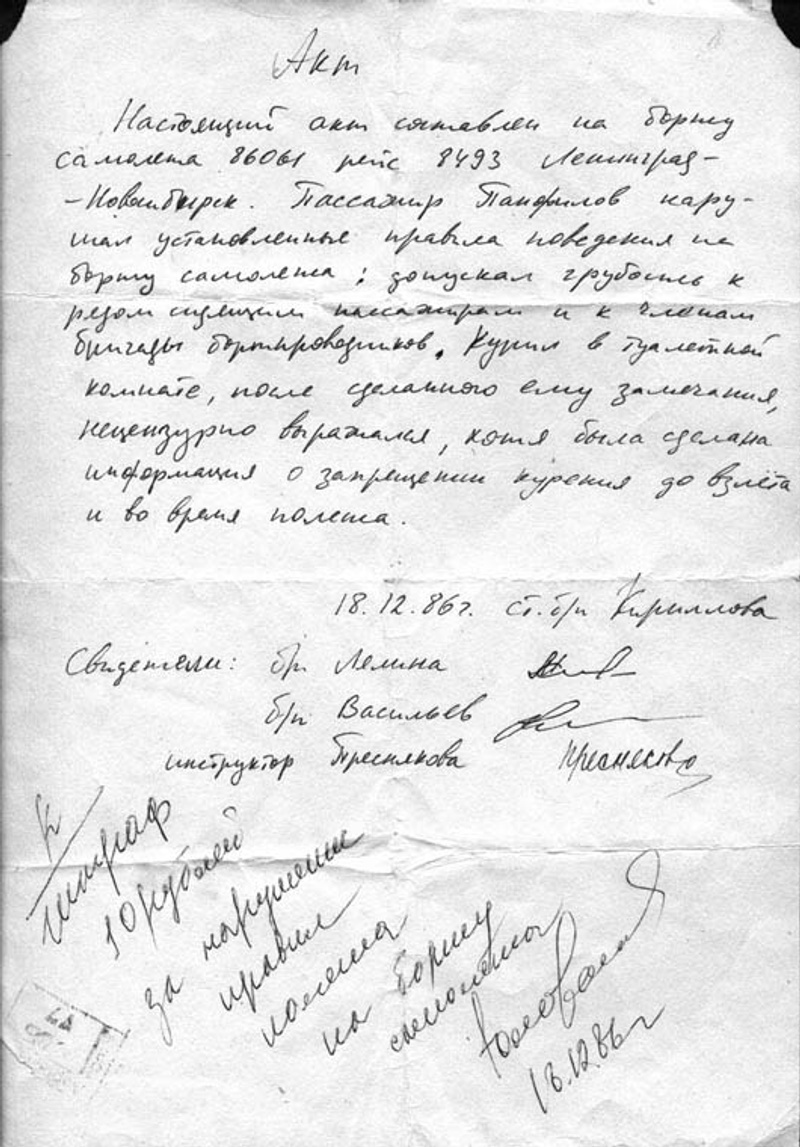 Акт
Настоящий акт составлен на борту
самолета 86061 рейс 8493 Ленинград-
-Новосибирск. Пассажир Панфилов нару-
шал установленные правила поведения на
борту самолета: допускал грубость к
рядом сидящим пассажирам и к членам
бригады бортпроводников. Курил в туалетной
комнате, после сделанного ему замечания,
нецензурно выражался, хотя была сделана
информация о запрещении курения до взлёта
и во время полета.
18.12.86г. ст. б/п Кириллова
Свидетели: б/п Лелина
б/п Васильев
инструктор Преснякова
К
штраф
10 рублей
за нарушение
правил
полета
на борту
самолёта
18.12.86г